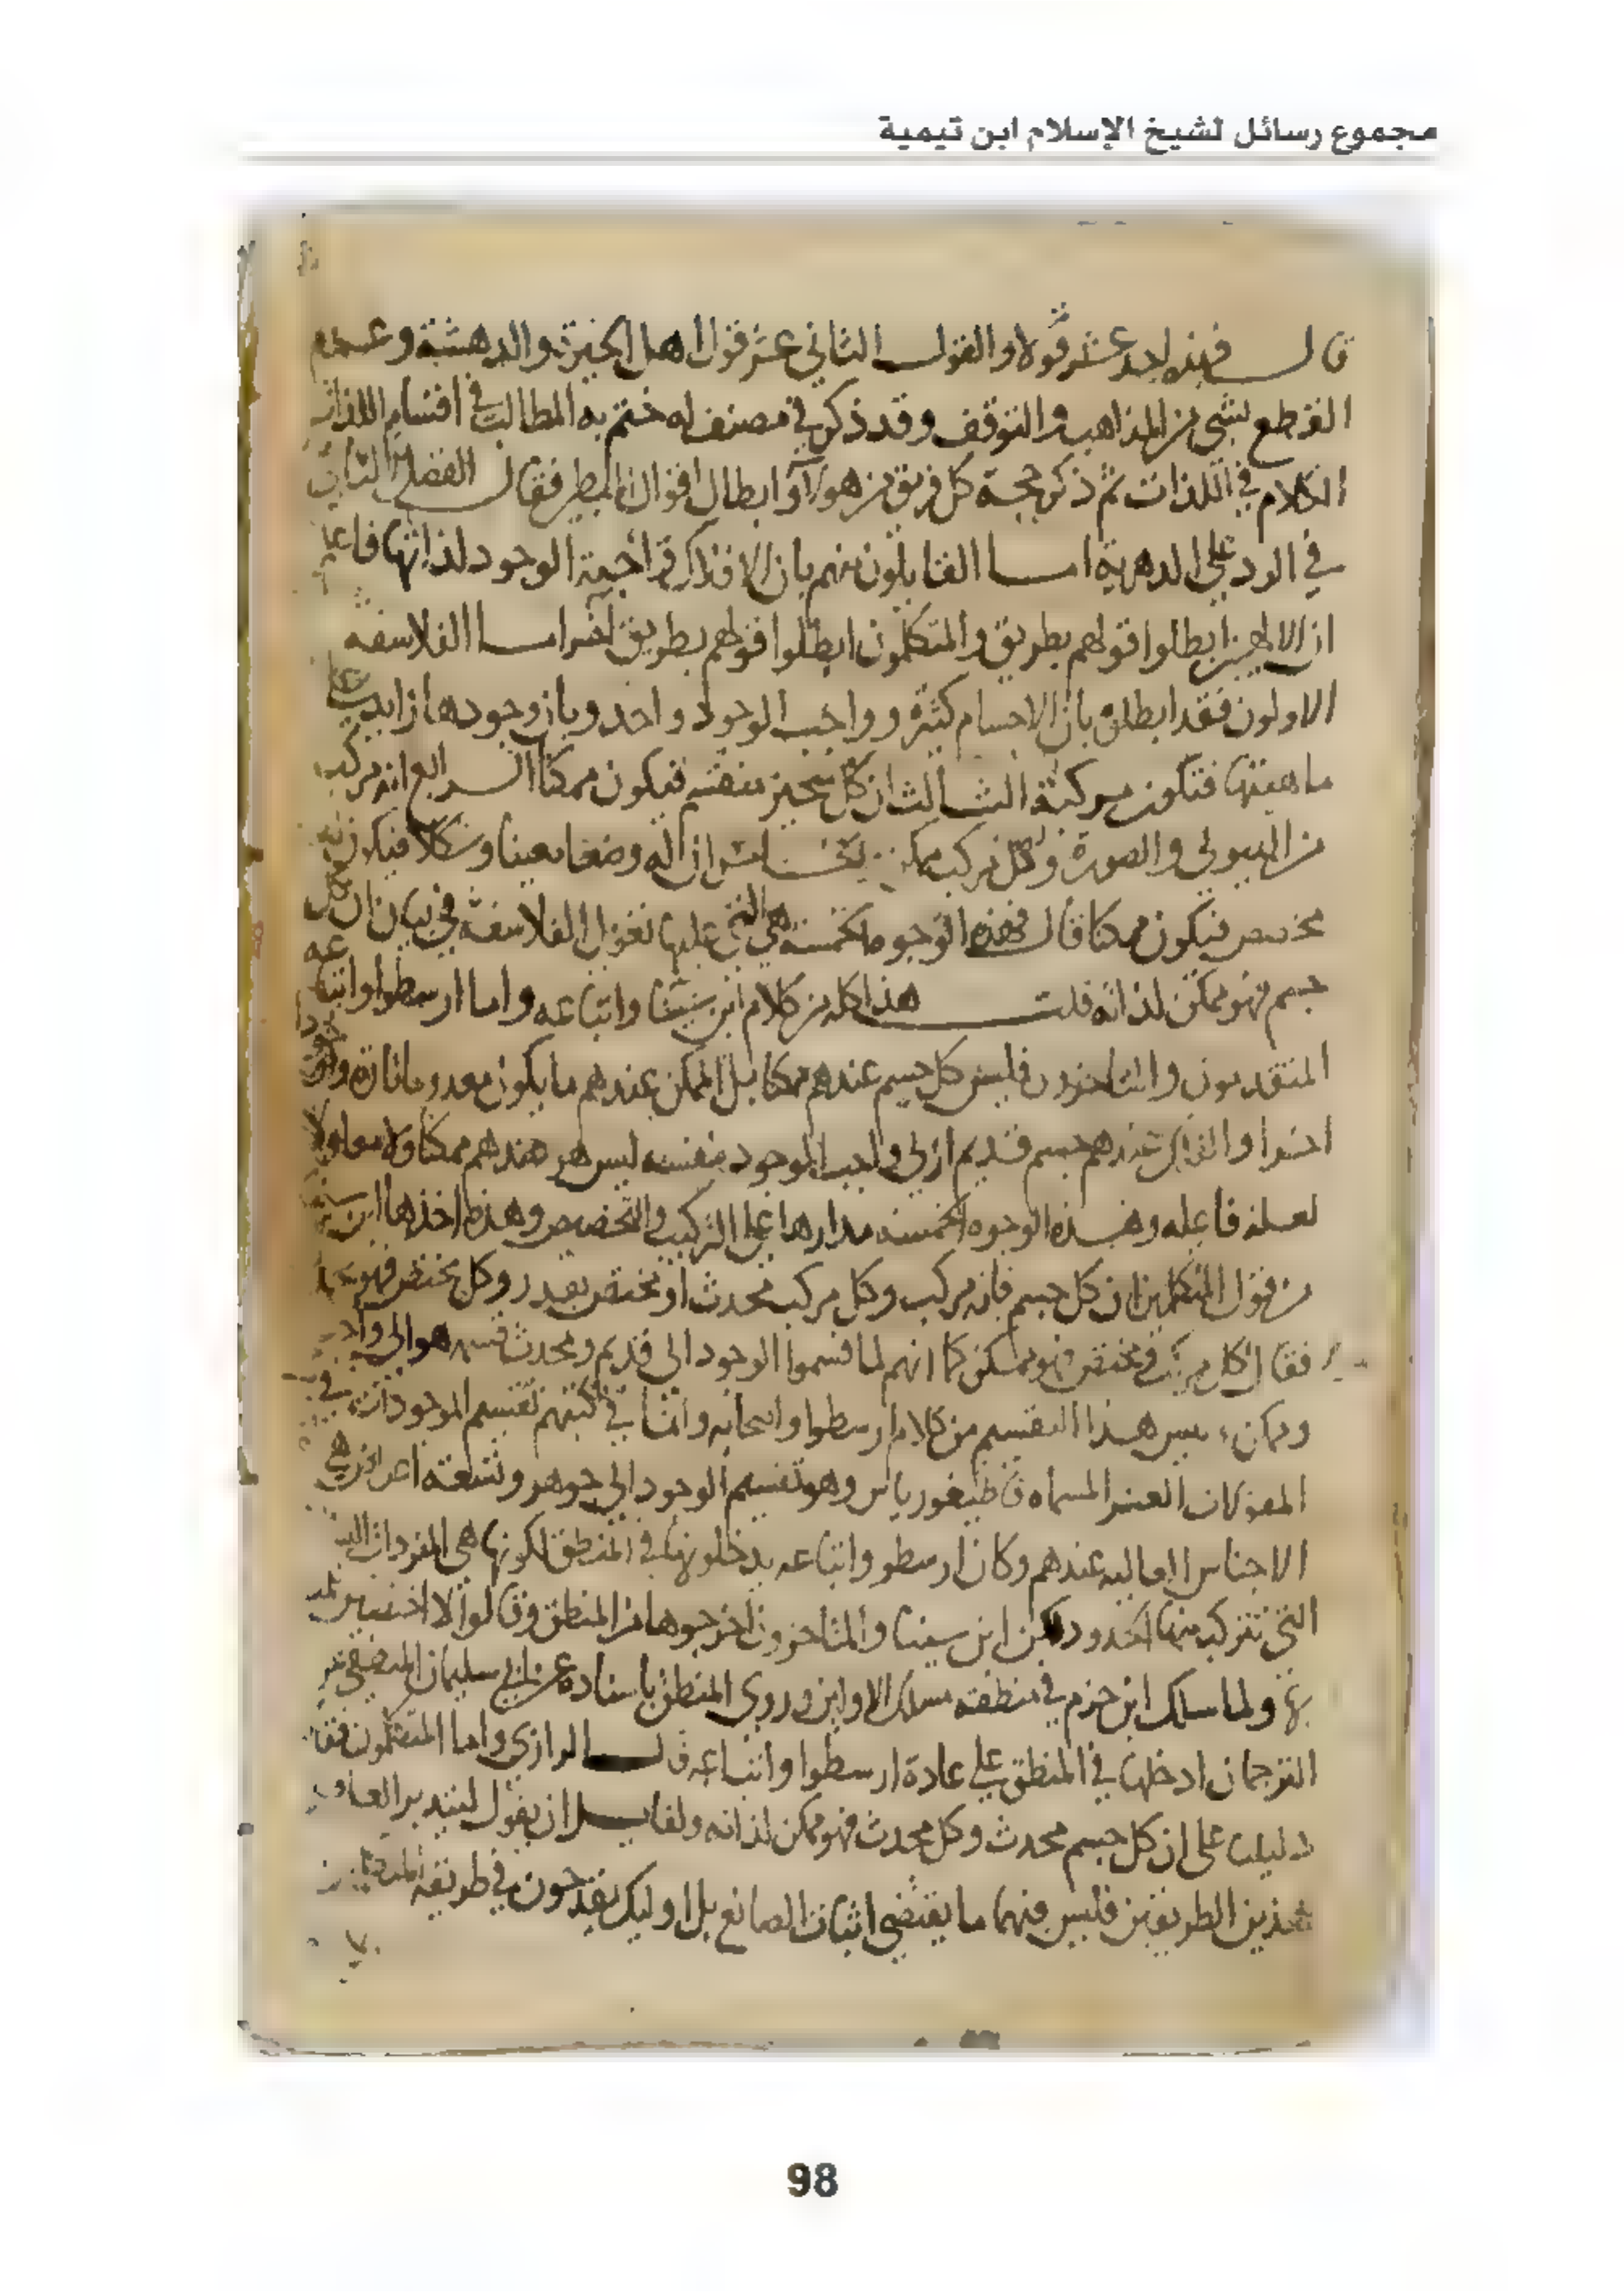 مجموع رسائل لشيخ الإسلام ابن تيمية
قال فهذه احد عشر قولا والقول الثاني عشر قول اهل الحيرة والدهشة وعدم
القطع بشي من المذاهب والتوقف وقد ذكر في مصنف له ختم به المطالب في اقسام اللذات
الكلام في اللذات ثم ذكر حجة كل فريق من هولاء وابطال اقوال فقال الفصل الثاني
في الرد على الدهرية اما القايلون منهم بان الافلاك واجبة الوجود لذاتها فاعلم
ان الالهيين ابطلوا قولهم بطريق والمتكلمون ابطلوا قولهم بطريق اخر اما الفلاسفة
الاولون فقد ابطلوه بان الاجسام كثيرة وواجب الوجود واحد وبان وجودها زايد على
ماهيتها فتكون مركبة الثالث ان كل متحيز منقسم فيكون ممكنا الرابع انه مركب
من الهيولى والصورة وكل مركب ممكن الخامس ان له وضعا معينا وشكلا فيكون له
مخصص فيكون ممكنا قال فهذه الوجوه الخمسة هي التي عليها تعويل الفلاسفة في بيان ان كل
جسم فهو ممكن لذاته قلت هذا كله من كلام ابن سينا واتباعه واما ارسطوا واتباعه
المتقدمون والمتاخرون فليس كل جسم عندهم ممكنا بل الممكن عندهم ما يكون معدوما تارة وموجودا
اخرا والفلك عندهم جسم قديم ازلي واجب الوجود بنفسه ليس هو عندهم ممكنا ولا معلولا
لعلة فاعله وهذه الوجوه الخمسة مدارها على التركيب والتخصيص وهذه اخذها ابن سينا
من قول المتكلمين ان كل جسم فانه مركب وكل مركب محدث او مختص بقدر وكل مختص فهو محدث
فقال كل مركب ومختص فهو ممكن كما انهم لما قسموا الوجود الى قديم ومحدث قسمه هو الى واجب
وممكن وليس هذا التقسيم من كلام ارسطوا واصحابه وانما في كتبهم تقسيم الموجودات في
المقولات العشر المسماه قاطيغورياس وهو تقسيم الوجود الى جوهر وتسعة اعراض هي
الاجناس العاليه عندهم وكان ارسطو واتباعه يدخلونها في المنطق لكونها هي المفردات
التي تتركب منها الحدود لكن ابن سينا والمتاخرون اخرجوها من المنطق وقالوا لا اختصاص له
بها ولما سلك ابن حزم في منطقه مسلك الاولين وروى المنطق باسناده عن ابي سليمان المنطقي عن
الترجمان ادخلها في المنطق على عادة ارسطوا واتباعه قال الرازي واما المتكلمون فقد
دليلنا على ان كل جسم محدث وكل محدث فهو ممكن لذاته ولقايل ان يقول ليتدبر العاقل
هذين الطريقين فليس فيهما ما يقتضي اثبات الصانع بل اوليك يقدحون في طريقة
98